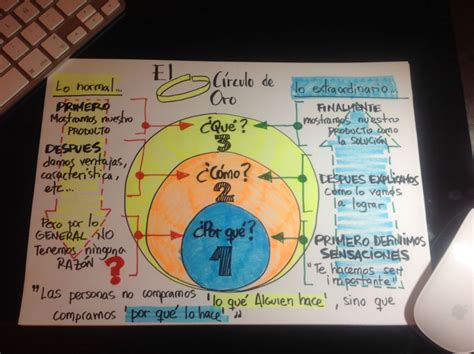 El Círculo de
Oro
Lo normal...
PRIMERO
Mostramos nuestro
PRODUCTO
DESPUES
damos ventajas,
característica,
etc...
Pero por lo
GENERAL NO
Tenemos ninguna
RAZÓN
?
¿Qué?
3
¿Cómo?
2
¿Por qué?
1
lo extraordinario...
FINALMENTE
mostramos nuestro
PRODUCTO como
la SOLUCIÓN
DESPUES EXPLICAMOS
como lo vamos
a lograr
PRIMERO DEFINIMOS
SENSACIONES
"Te hacemos ser
importante"
"Las personas no compramos 'lo qué Alguien hace', sino que
compramos 'por qué lo hace'"